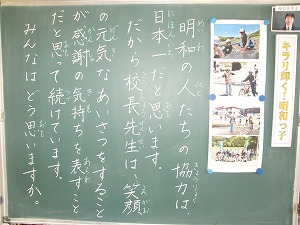 明和の人たちの協力は、
日本一だと思います。
だから校長先生は、笑顔
の元気なあいさつをすること
が感謝の気持ちを表すこと
だと思って続けています。
みんなはどう思いますか。
キラリ輝く！明和っ子